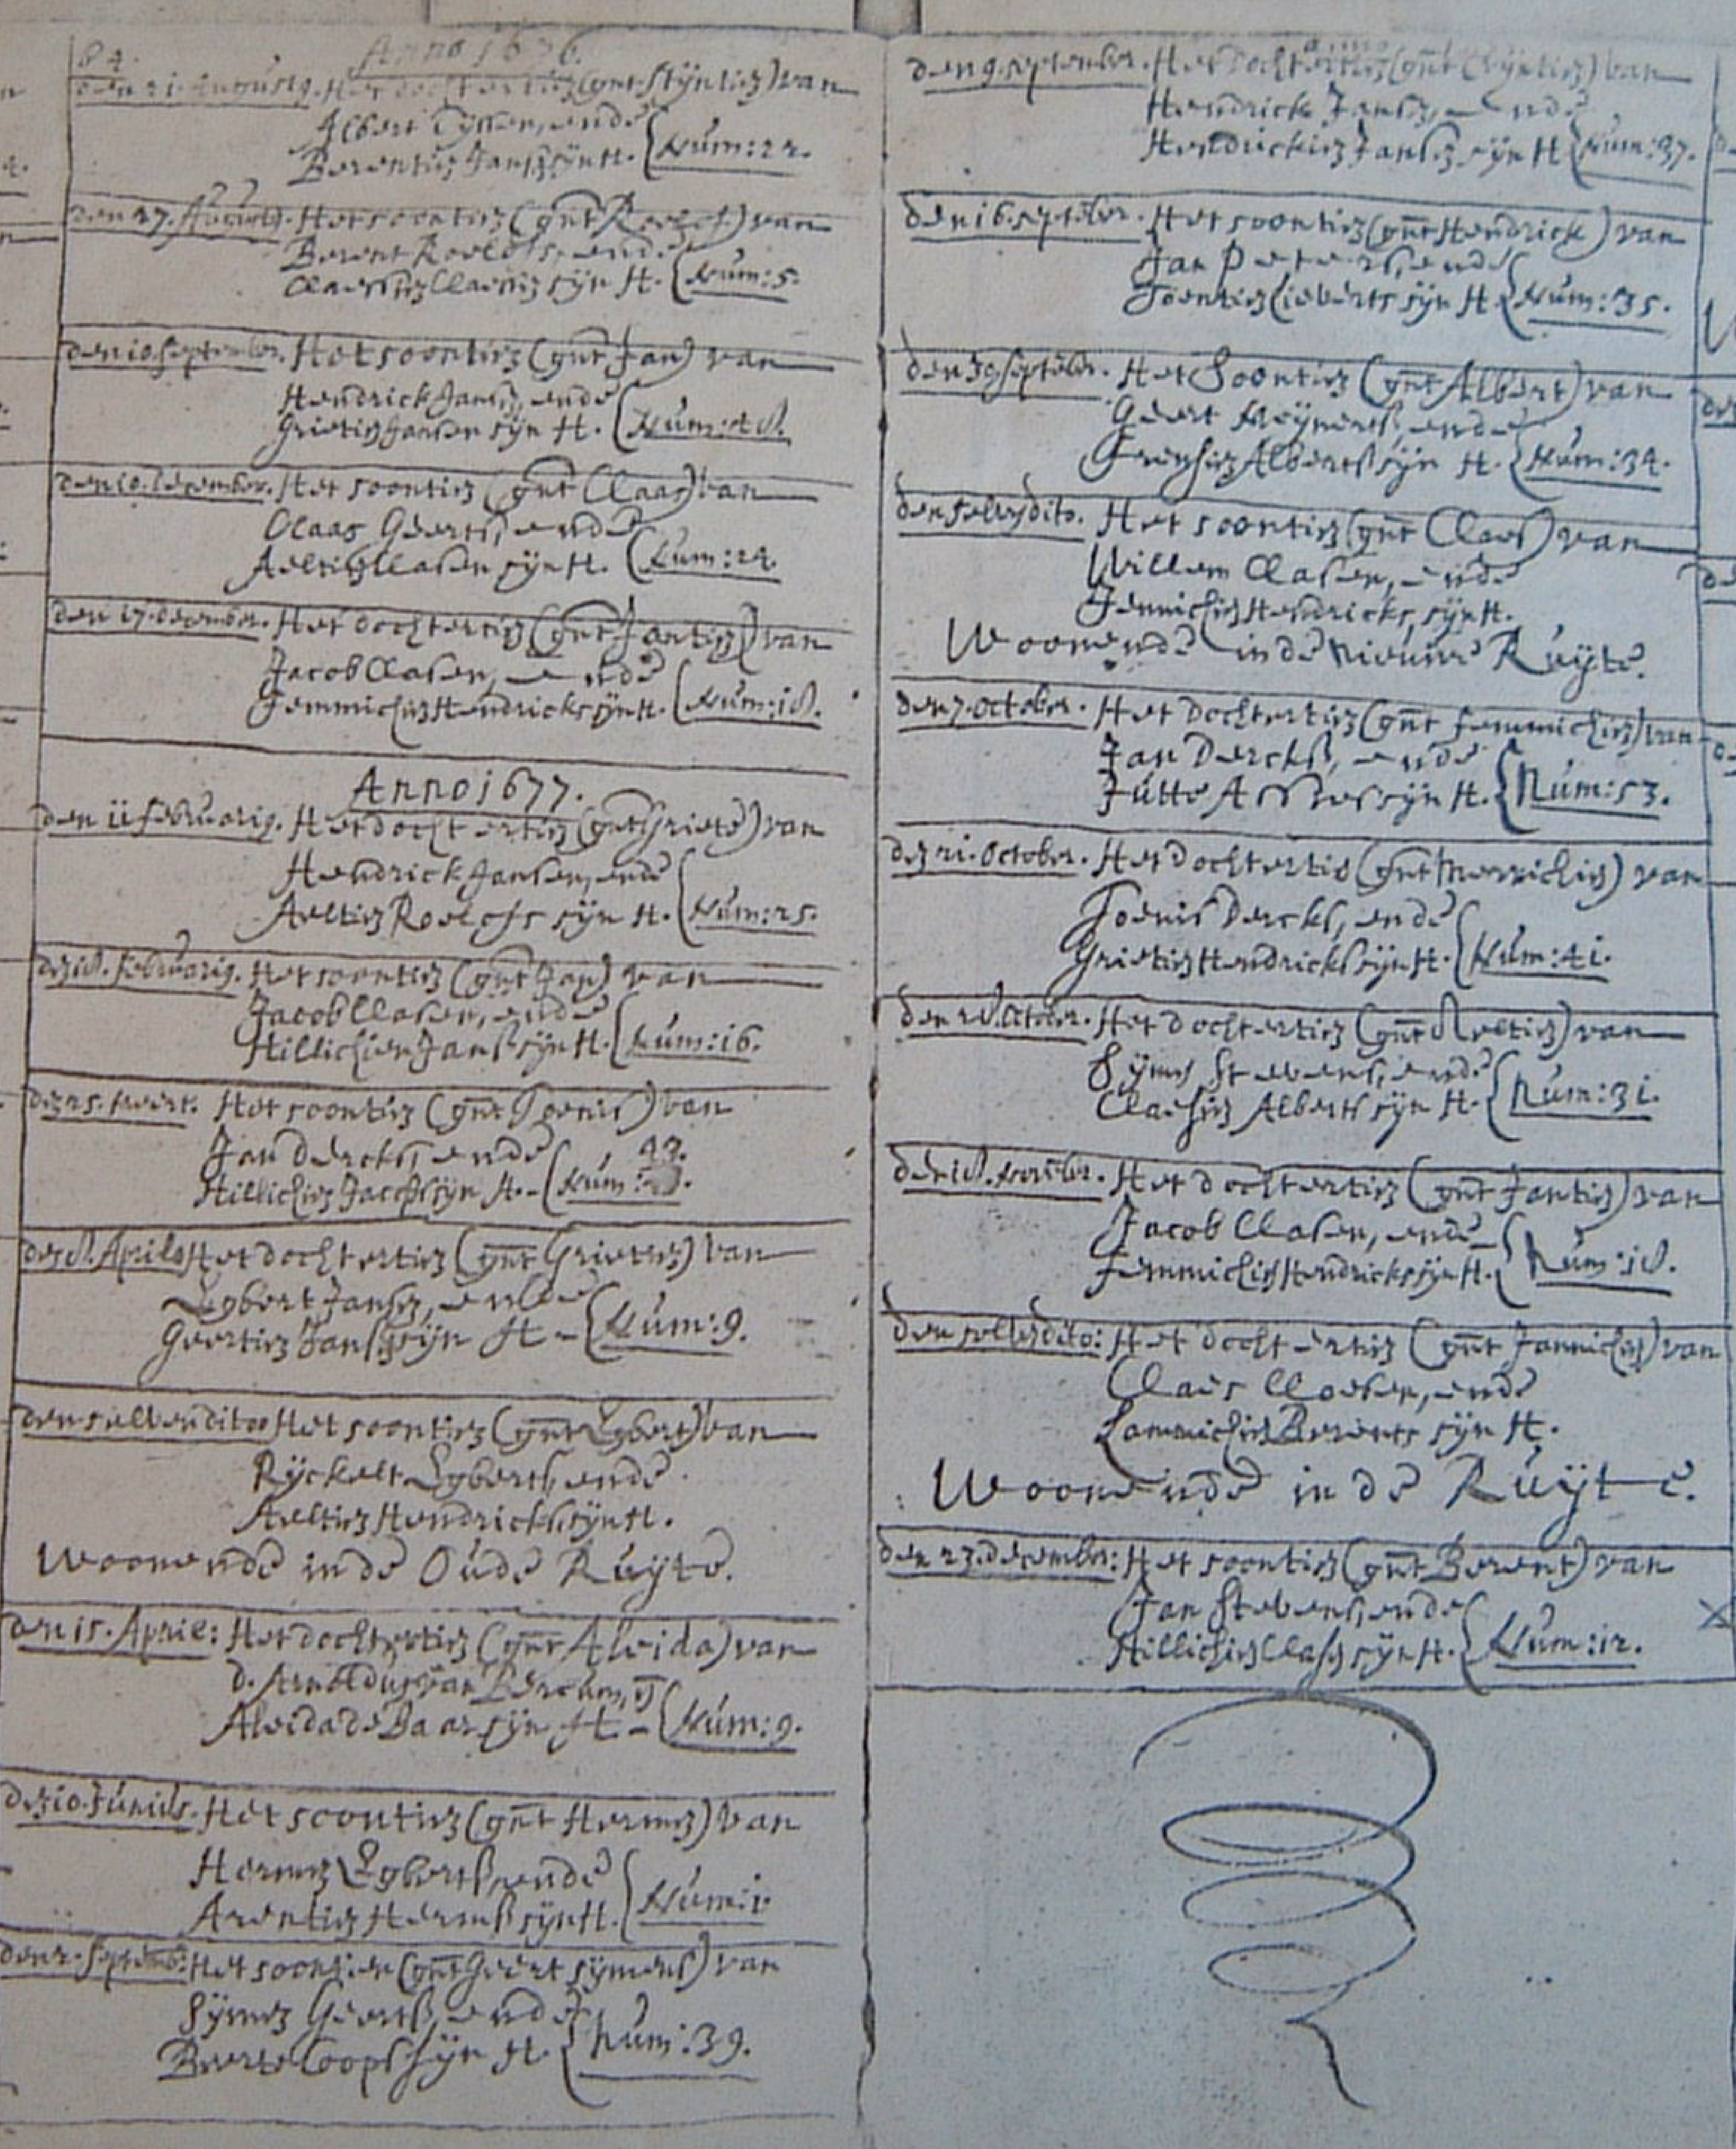 84. Anno 1676.
den 21. Augustq. Het dochtertien (gnt Stijntien) van
Albert Tijssen, ende
Berentien Jansz sijn H. Num: 22.
den 27. Augustq. Het soontien (gnt Roelof) van
Berent Roelofs, ende
Claessien Claessen sijn H. Num: 5.
den 10. September. Het soontien (gnt Jan) van
Hendrick Jansz, ende
Grietien Jansen sijn H. Num: 48.
den 10. December. Het soontien (gnt Claas) van
Claas Geerts, ende
Aeltien Clasen sijn H. Num: 24.
den 17. december. Het dochtertien (gnt Jantien) van
Jacob Clasen, ende
Femmichien Hendricks sijn H. Num: 18.
Anno 1677.
den 11 februarij. Het dochtertien (gnt Griete) van
Hendrick Jansen, ende
Aeltien Roelofs sijn H. Num: 25.
den 18. februarij. Het soontien (gnt Jan) van
Jacob Clasen, ende
Hillichien Jans sijn H. Num: 16.
den 25. meert: Het soontien (gnt Toenis) van
Jan Dercks, ende 42.
Hillichien Jacobs sijn H. Num:
den 8. Aprilq Het dochtertien (gnt Grietien) van
Egbert Jansz, ende
Geertien Jansz sijn H - Num: 9.
den selven dito Het soontien (gnt Egbert) van
Rijckelt Egberts, ende
Aeltien Hendricks, sijn H.
Woonende in de Oude Ruijte.
den 15. April: Het dochtertien (gnt Aleida) van
d. Arnoldus van Berchum,
Aleida de Baar sijn H - Num: 9.
den 10. Junius. Het soontien (gnt Hermen) van
Hermen Egberts, ende
Arentien Herms sijn H. Num: 1.
den 2. Septemb: Het soontien (gnt Geert sijmens) van
Sijmen Geerts, ende
Beerte Coops sijn H. Num: 39.
den 9. september. Het Dochtertien (gnt Trijntien) van
Hendrick Jansz, ende
Hendrickien Jansz sijn H Num: 37.
den 16. september. Het soontien (gnt Hendrick) van
Jan Peters, ende
Toentien Lieberts sijn H Num: 35.
den 30 september. Het Soontien (gnt Albert) van
Geert Meijnerts, ende
Frensien Alberts sijn H. Num: 34.
den selven dito. Het soontien (gnt Claes) van
Willem Clasen, ende
Jennichien Hendricks, sijn H.
Woonende in de Nieuwe Ruijte.
den 7. October. Het Dochtertien (gnt Femmichien) van
Jan Dercks, ende
Jutte Asses sijn H. Num: 53.
den 21. October. Het Dochtertien (gnt Merrichien) van
Toenis Dercks, ende
Grietien Hendricks sijn H. Num: 41.
den 28. October. Het dochtertien (gnt Aeltien) van
Sijmen Stevens, ende
Claesien Alberts sijn H. Num: 31.
den 18. November. Het Dochtertien (gnt Jantien) van
Jacob Clasen, ende
Femmichien Hendricks sijn H. Num: 18.
den selven dito: Het dochtertien (gnt Jannichien) van
Claes Cloeten, ende
Lammichien Berents sijn H.
Woonende in de Ruijte.
den 23. december: Het soontien (gnt Berent) van
Jan Stevens, ende
Hillichien Clasen sijn H. Num: 12.